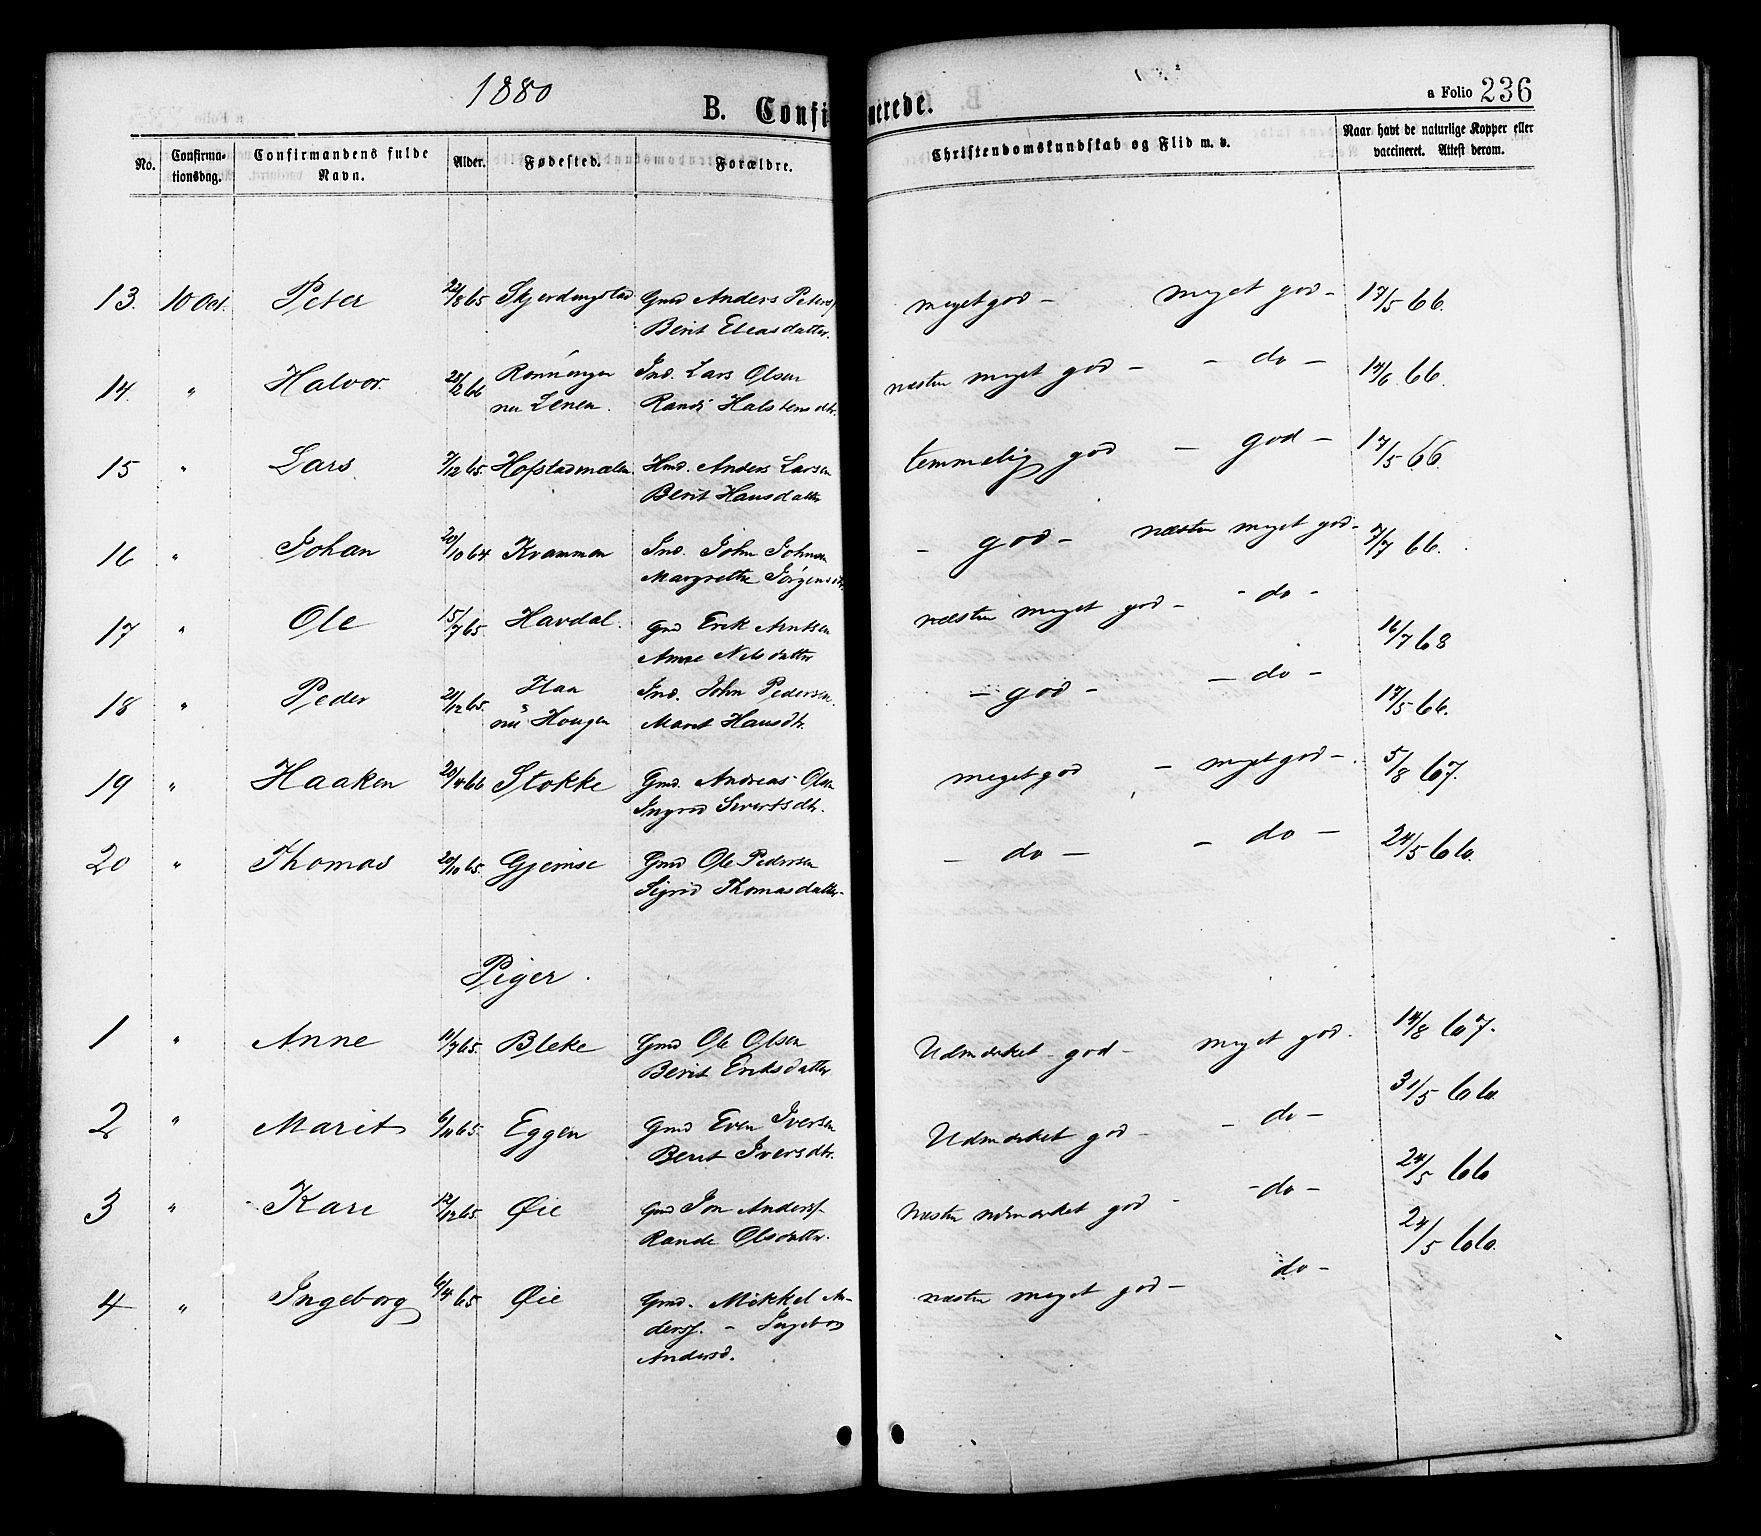 1880
B. Confirmerede.
a Folio 236
No. Confirmationsdag. Confirmandens fulde Navn. Alder. Fødested. Forældre. Christendomskundskab og Flid m. v. Naar havt de naturlige Kopper eller vaccineret. Attest derom.
13. 10 Oct. Peter 22/8 65 Skjerdingstad Gmd Anders Peters. meget god - meget god - 17/5 66.
Berit Eleasdatter.
14. " Halvor. 28/2 66 Rønningen Ind. Lars Olsen næsten meget god - - do - 14/6 66.
nu Lenen. Randi Halstensdtr.
15 " Lars. 7/12 65. Hofstadmælen Hmd. Anders Larsen temmelig god - god - 17/5 66.
Berit Hansdatter
16 " Johan 20/10 64 Kvammen Ind. John Johnsen - god - næsten meget god - 7/7 66.
Margrethe Jørgensdtr.
17 " Ole 15/7 65. Havdal. Gmd Erik Arntsen næsten meget god - - do - 16/7 68
Anne Nilsdatter
18 " Peder 21/12 65. Haa Ind. John Pedersen - god - - do - 17/5 66.
nu Haugen Marit Hansdtr.
19 " Haaken 20/4 66 Stokke Gmd. Andreas Olsen meget god - meget god - 5/8 67.
Ingrid Sivertsdtr.
20 " Thomas 20/10 65. Gjeimse Gmd Ole Pedersen - do - - do - 24/5 66.
Sigrid Thomasdatter
Piger.
1 " Anne 11/7 65. Bleke Gmd Ole Olsen Udmærket god - meget god. 14/8 67.
Berit Eriksdatter
2 " Marit 6/11 65. Eggen Gmd Even Iversen Udmærket god - - do - 31/5 66.
Berit Iversdtr.
3 " Kari 12/12 65 Øie Gmd Jon Anders. Næsten udmærket god - - do - 24/5 66
Rande Olsdatter.
4 " Ingeborg 6/4 65 Øie Gmd. Mikkel An- næsten meget god - do - 24/5 66.
ders. - Ingebor
Andersd.